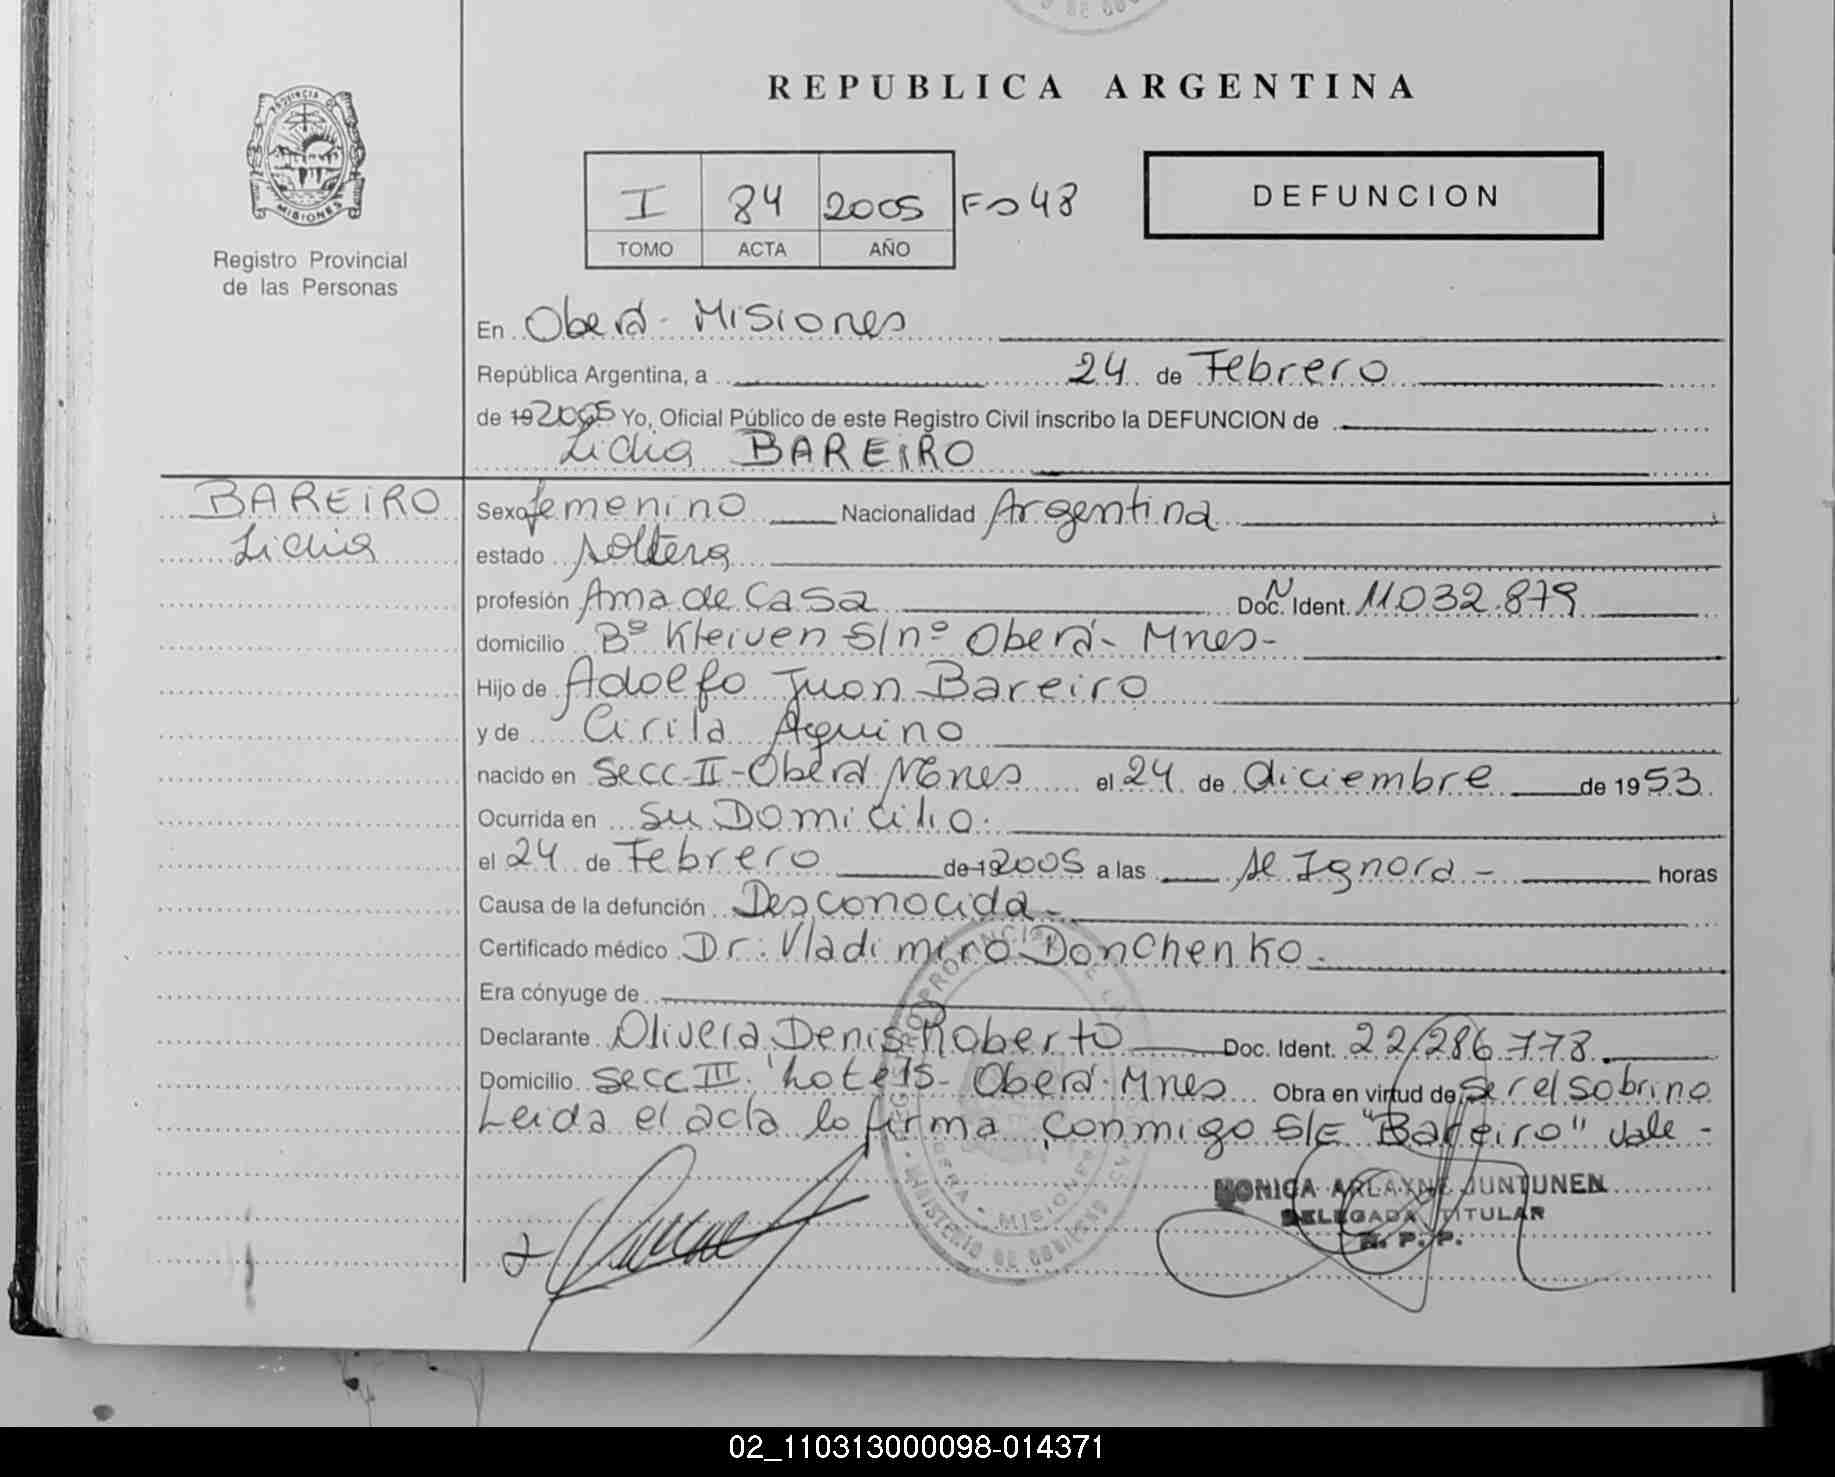 REPUBLICA ARGENTINA
PROVINCIA DE
MISIONES
Registro Provincial
de las Personas
I 84 2005 Fo 48
TOMO ACTA AÑO
DEFUNCION
En Oberá - Misiones
República Argentina, a 24 de Febrero
de 19 2005 Yo, Oficial Público de este Registro Civil inscribo la DEFUNCION de
Lidia BAREIRO
BAREIRO
Lidia
Sexo femenino Nacionalidad Argentina
estado soltera
profesión Ama de Casa Doc. Ident. N 11.032.879
domicilio Bº Kleiven S/nº Oberá - Mnes -
Hijo de Adolfo Juan Bareiro
y de Cirila Aquino
nacido en Secc - II - Oberá Mnes el 24 de diciembre de 1953
Ocurrida en su Domicilio.
el 24 de Febrero de 19 2005 a las se Ignora - horas
Causa de la defunción Desconocida -
Certificado médico Dr. Vladimiro Donchenko.
Era cónyuge de
Declarante Olivera Denis Roberto Doc. Ident. 22.286.778.
Domicilio Secc III. Lote 15 - Oberá - Mnes Obra en virtud de ser el sobrino
Leida el acta lo firma conmigo S/E "Bareiro" vale -
MONICA ARLAYNE JUNTUNEN
DELEGADA TITULAR
R. P. P.
MINISTERIO DE GOBIERNO
MISIONES
02_110313000098-014371